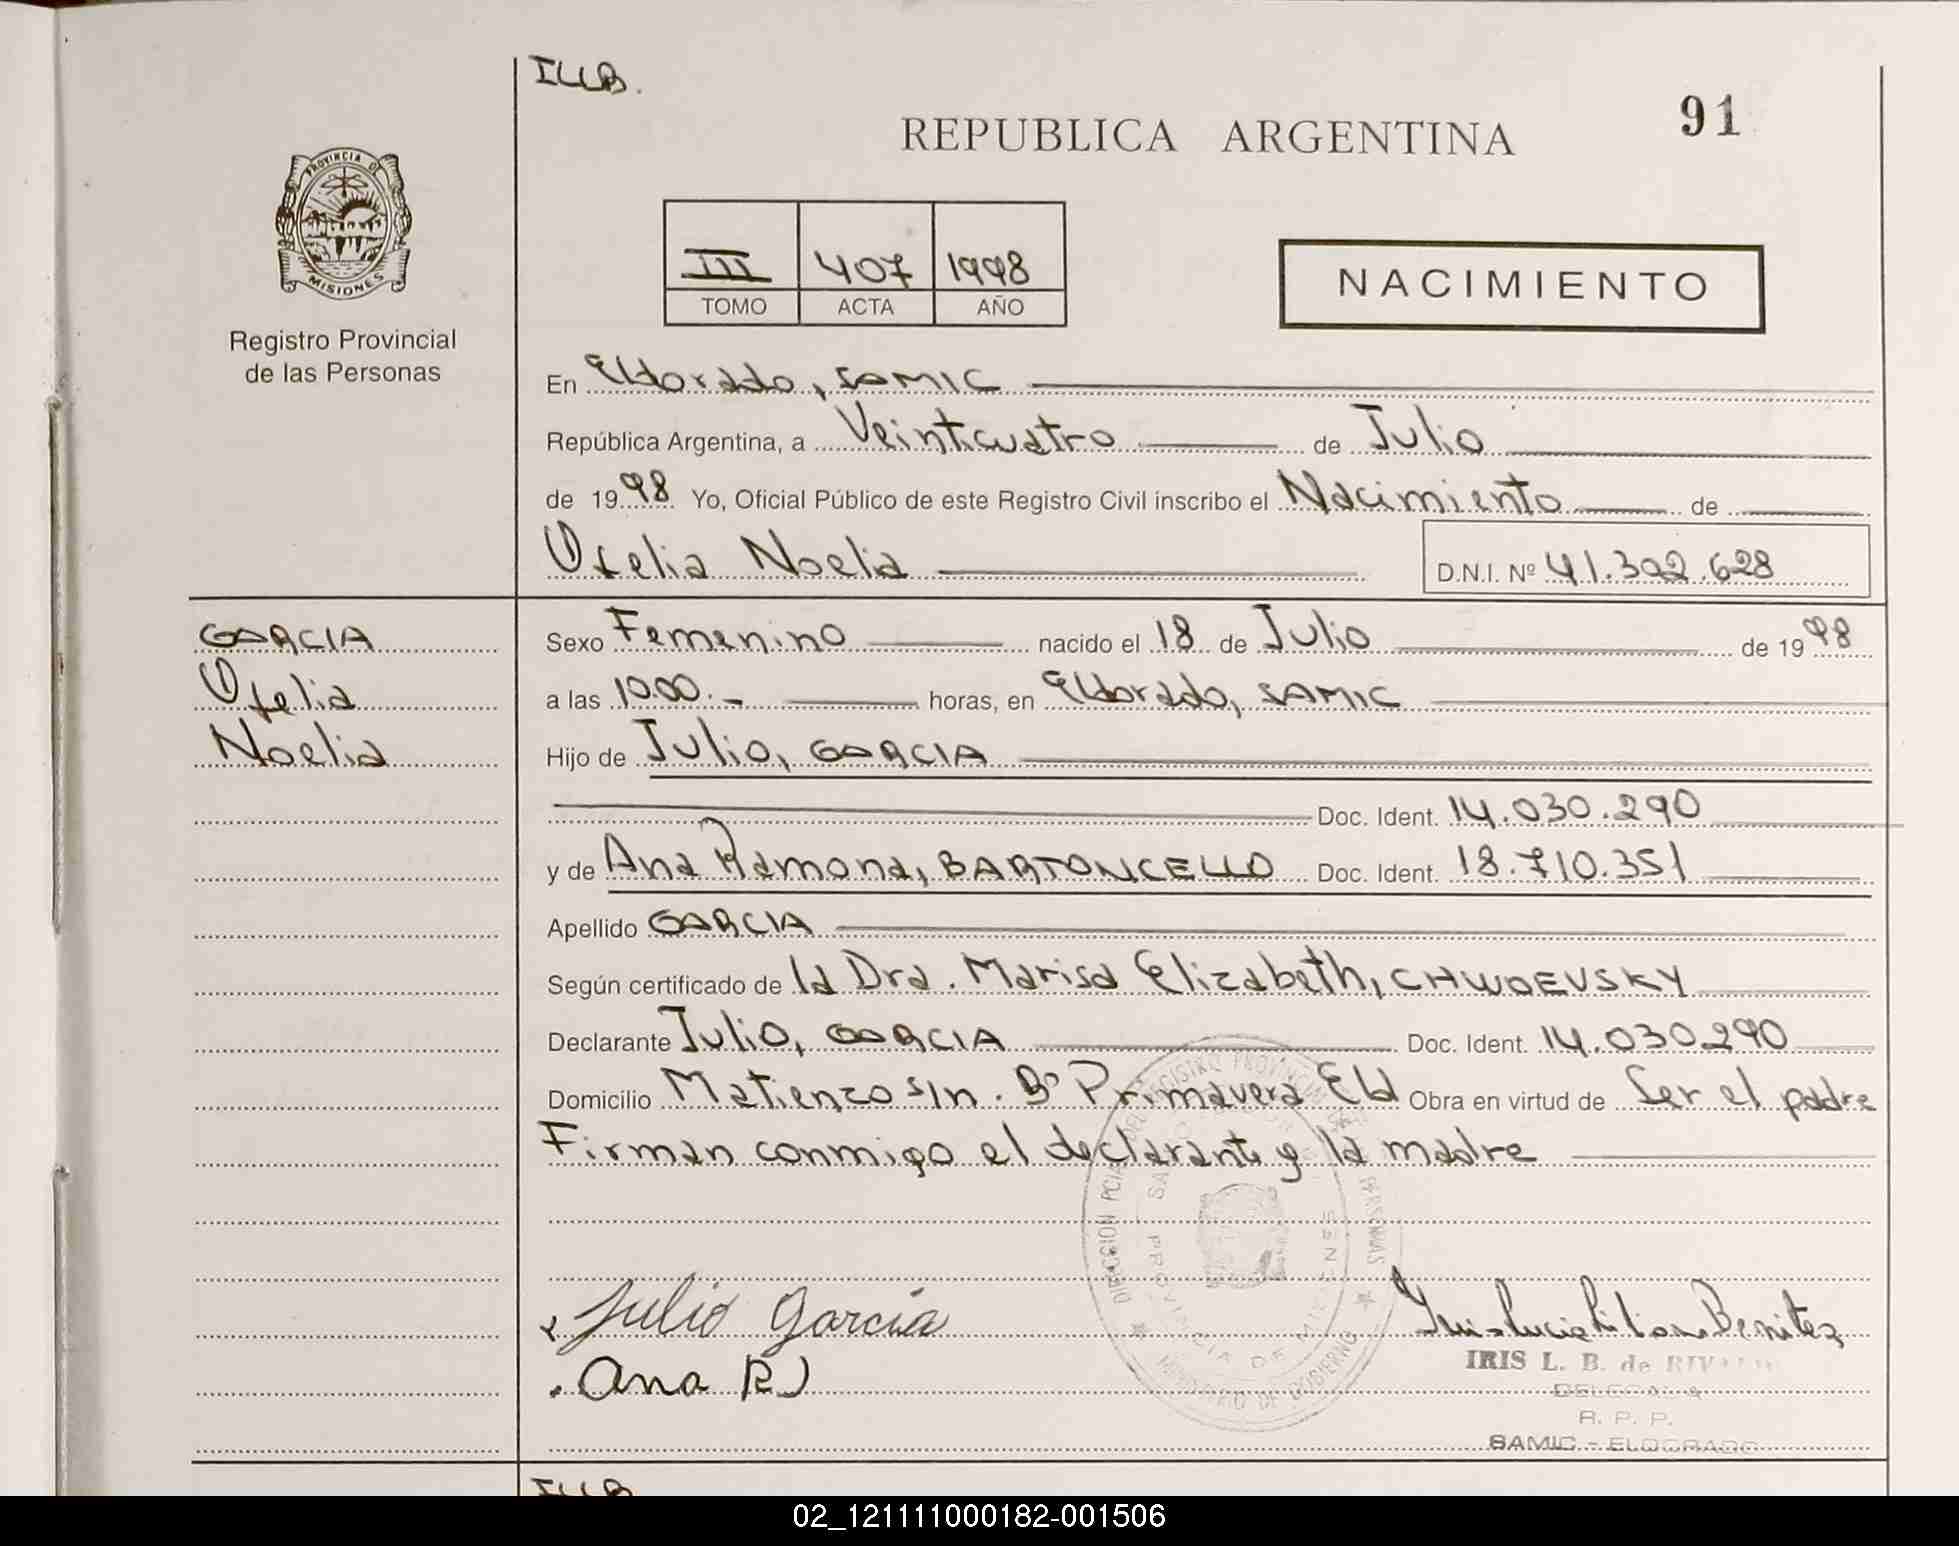 ILLB.
91
REPUBLICA ARGENTINA
PROVINCIA DE
MISIONES
Registro Provincial
de las Personas
III 407 1998
TOMO ACTA AÑO
NACIMIENTO
En Eldorado, SAMIC
República Argentina, a Veinticuatro de Julio
de 1998 Yo, Oficial Público de este Registro Civil inscribo el Nacimiento de
Ofelia Noelia D.N.I. Nº 41.392.628
GARCIA
Ofelia
Noelia
Sexo Femenino nacido el 18 de Julio de 1998
a las 10.00.- horas, en Eldorado, SAMIC
Hijo de Julio, GARCIA
Doc. Ident. 14.030.290
y de Ana Ramona, BARTONCELLO Doc. Ident. 18.710.351
Apellido GARCIA
Según certificado de la Dra. Marisa Elizabeth, CHWOEVSKY
Declarante Julio, GARCIA Doc. Ident. 14.030290
Domicilio Matienzo s/n. Bº Primavera Eld Obra en virtud de Ser el padre
Firman conmigo el declarante y la madre
DIRECCION PCIAL DEL REGISTRO PROVINCIAL DE LAS PERSONAS
PROVINCIA DE MISIONES
MINISTERIO DE GOBIERNO
Julio Garcia
Ana R
Benitez
IRIS L. B. de
DELEGADA
R. P. P.
SAMIC - ELDORADO
ILLB
02_121111000182-001506